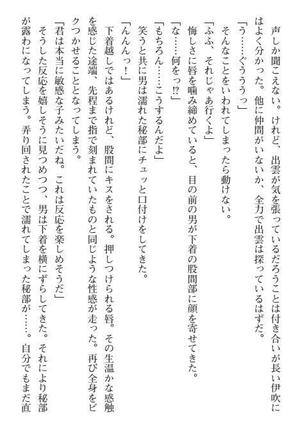 声しか聞こえない。だけれど、出雲が気を張っているだろうことは付き合いが長い伊吹に
はよく分かった。他に仲間がいないか、全力で出雲は探っているはずだ。
「う……ぐううぅっ」
そんなことをいわれてしまったら動けない。
「ふふ、それじゃあ行くよ」
悔しさに唇を噛み締めていると、目の前の男が下着の股間部に顔を寄せてきた。
「な……何をっ!?」
「もちろん……こうするんだよ」
笑うと共に男は濡れた秘部にチュッと口付けをしてきた。
「んんんっ!」
下着越しではあるけれど、股間にキスをされる。押しつけられる唇。その生温かな感触
を感じた途端、先程まで指で刻まれていたものと同じような性感が走った。再び全身をビ
クつかせることとなってしまう。
「君は本当に敏感な子みたいだね。これは反応を楽しめそうだ」
そうした反応を嬉しそうに見つめつつ、男は下着を横にずらしてきた。それにより秘部
が露わになってしまう。弄り回されたことで濡れてしまった秘部が……。自分でもまだ直